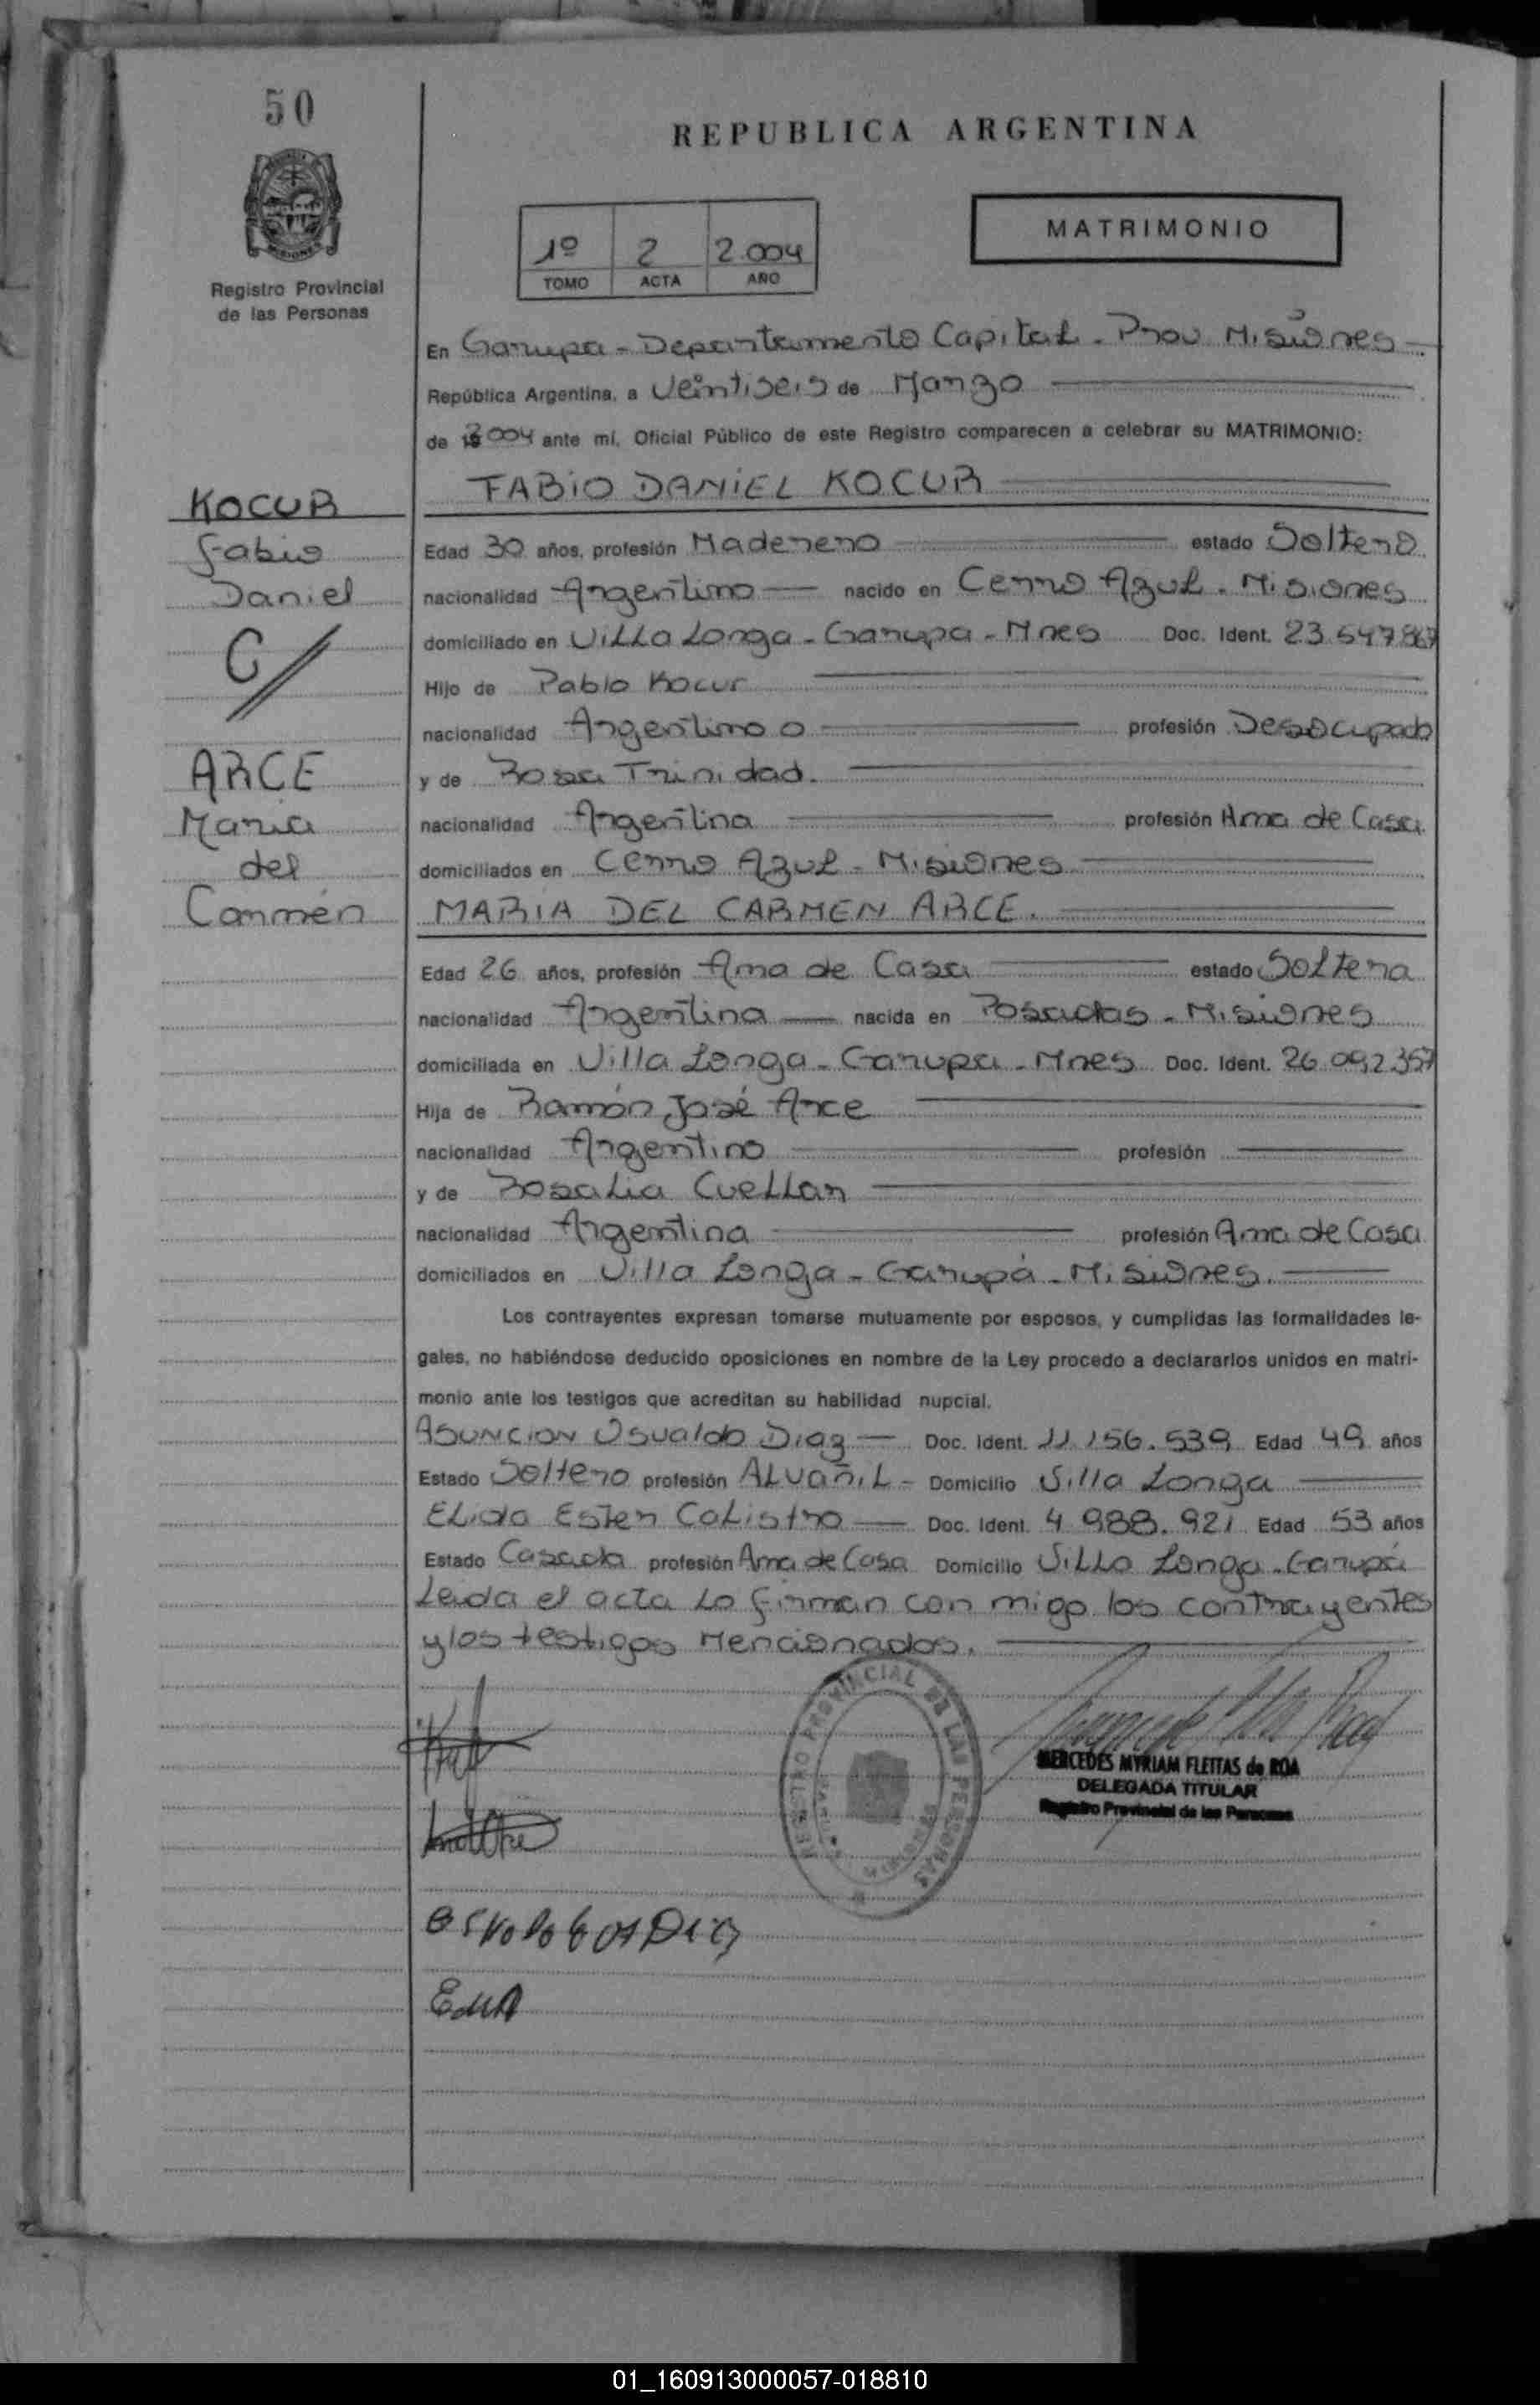 50
REPUBLICA ARGENTINA
MATRIMONIO
1º 2 2.004
TOMO ACTA AÑO
Registro Provincial
de las Personas
En Garupa - Departamento Capital - Prov Misiones
República Argentina, a Veintiseis de Marzo
de 2004 ante mí, Oficial Público de este Registro comparecen a celebrar su MATRIMONIO:
FABIO DANIEL KOCUR
KOCUR
Fabio
Daniel
C/
ARCE
Maria
del
Carmen
Edad 30 años, profesión Maderero estado Soltero
nacionalidad Argentino nacido en Cerro Azul - Misiones
domiciliado en Villa Longa - Garupa - Mnes Doc. Ident. 23.547.867
Hijo de Pablo Kocur
nacionalidad Argentino o profesión Desocupado
y de Rosa Trinidad.
nacionalidad Argentina profesión Ama de Casa
domiciliados en Cerro Azul - Misiones
MARIA DEL CARMEN ARCE.
Edad 26 años, profesión Ama de Casa estado Soltera
nacionalidad Argentina nacida en Posadas - Misiones
domiciliada en Villa Longa - Garupa - Mnes Doc. Ident. 26.092.357
Hija de Ramón José Arce
nacionalidad Argentino profesión
y de Rosalia Cuellar
nacionalidad Argentina profesión Ama de Casa
domiciliados en Villa Longa - Garupá - Misiones.
Los contrayentes expresan tomarse mutuamente por esposos, y cumplidas las formalidades le-
gales, no habiéndose deducido oposiciones en nombre de la Ley procedo a declararlos unidos en matri-
monio ante los testigos que acreditan su habilidad nupcial.
ASUNCION Osvaldo Diaz Doc. Ident. 11.156.539 Edad 49 años
Estado Soltero profesión ALVañiL - Domicilio Villa Longa
ELida Ester Calistro Doc. Ident. 4 988.921 Edad 53 años
Estado Casada profesión Ama de Casa Domicilio Villa Longa - Garupá
Leida el acta Lo firman con migo los contrayentes
y los testigos Mencionados.
REGISTRO PROVINCIAL DE LAS PERSONAS
MISIONES
MERCEDES MYRIAM FLEITAS de ROA
DELEGADA TITULAR
Registro Provincial de las Personas
01_160913000057-018810